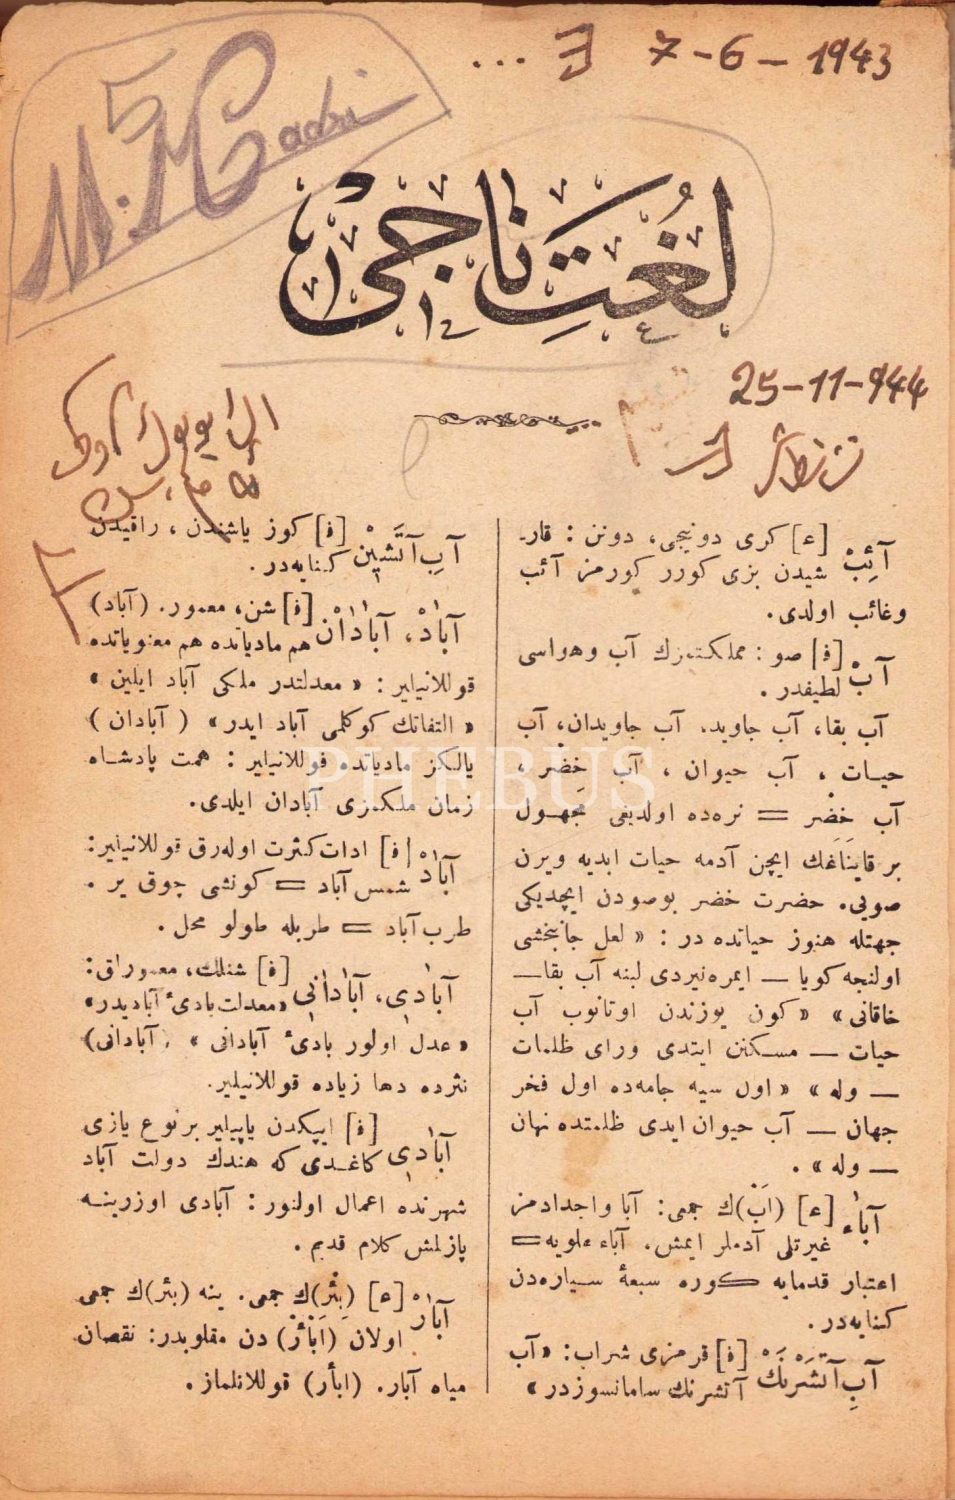 7-6-1943
M. M. Cadri
لُغَتِ نَاجِىْ
25-11-944
آئِبْ [ع] كرى دونیجى، دونن : قار-
شیدن بزى كورر كورمز آئب
وغائب اولدى.
آبْ [ف] صو : مملكتمزك آب وهواسى
لطیفدر .
آب بقا، آب جاوید، آب جاویدان، آب
حیات ، آب حیوان ، آب خِضْر ،
آب خَضِر = نره‌ده اولدیغى مجهول
بر قایناغك ایچن آدمه حیات ابدیه ویرن
صویى. حضرت خضر بوصودن ایچدیكى
جهتله هنوز حیاتده در : « لعل جانبخشى
اولنجه كویا — ایمره‌نیردى لبنه آب بقا—
خاقانى» « كون یوزندن اوتانوب آب
حیات — مسكنن ایتدى وراى ظلمات
— وله » « اول سیه جامه‌ده اول فخر
جهان — آب حیوان ایدى ظلمتده نهان
— وله » .
آباء [ع] (اَبْ)ك جمعى: آبا واجدادمز
غیرتلى آدملر ایمش. آباء علویه=
اعتبار قدمایه كوره سبعهٔ سیاره‌دن
كنایه‌در.
آبِ آتَشْرَنْكْ [ف] قرمزى شراب: «آب
آتشرنك سامانسوزدر»
آبِ آتَشِینْ [ف] كوز یاشندن ، راقیدن
كنایه‌در.
آبادْ، آبادانْ [ف] شن، معمور. (آباد)
هم مادیاتده هم معنویاتده
قوللانیلیر : « معدلتدر ملكى آباد ایلین »
« التفاتك كوكلمى آباد ایدر» ( آبادان )
یالكز مادیاتده قوللانیلیر : همت پادشاه
زمان ملكمزى آبادان ایلدى.
آبادْ [ف] ادات كثرت اوله‌رق قوللانیلیر:
شمس آباد = كونشى چوق یر .
طرب آباد = طربله طولو محل .
آبادى، آبادانى [ف] شنلك، معموراق:
«معدلت بادئ آبادیدر»
« عدل اولور بادئ آبادانى » (آبادانى)
نثرده دها زیاده قوللانیلیر.
آبادى [ف] ایپكدن یاپیلیر برنوع یازى
كاغدى كه هندك دولت آباد
شهرنده اعمال اولنور : آبادى اوزرینه
یازلمش كلام قدیم .
آبارْ [ع] (بِئْر)ك جمعى. ینه (بئر)ك جمعى
اولان (اَبْأُرْ) دن مقلوبدر: نقصان
میاه آبار. (ابأر) قوللانلماز .
PHEBUS